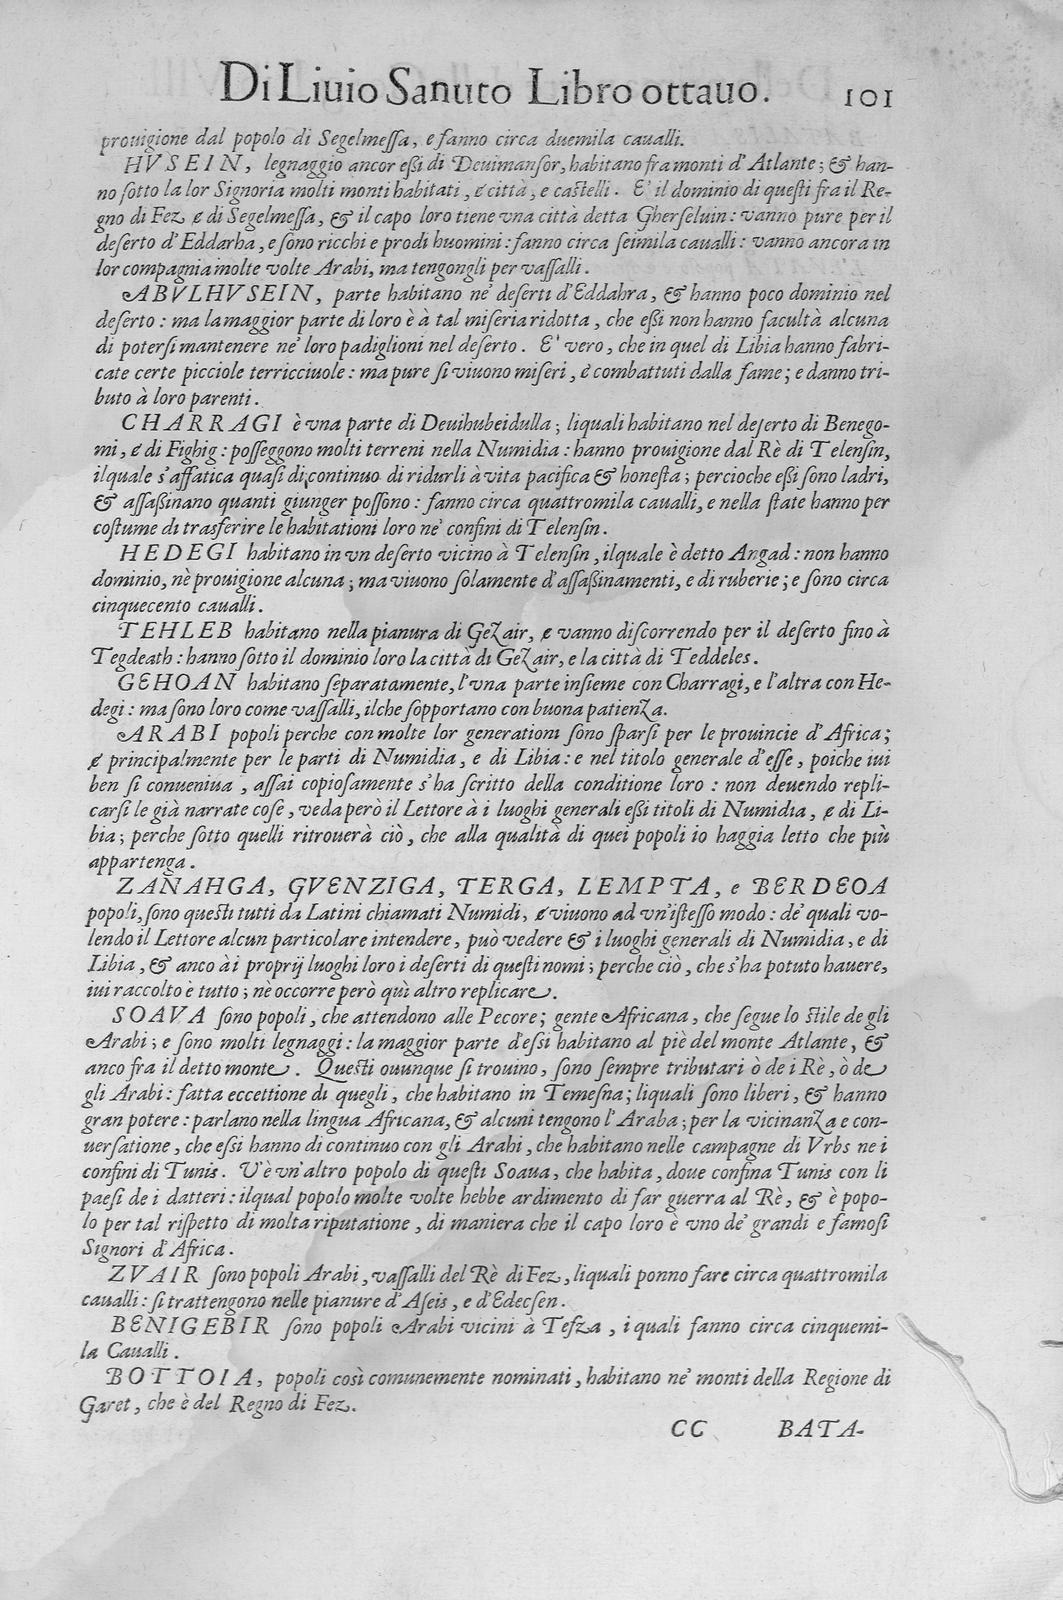 Di Liuio Sanuto Libro ottauo. 101
prouigione dal popolo di Segelmessa, e fanno circa duemila caualli.
HVSEIN, legnaggio ancor essi di Deuimansor, habitano fra monti d'Atlante; & han-
no sotto la lor Signoria molti monti habitati, e città, e castelli. E' il dominio di questi fra il Re-
gno di Fez e di Segelmessa, & il capo loro tiene vna città detta Gherseluin: vanno pure per il
deserto d'Eddarha, e sono ricchi e prodi huomini: fanno circa seimila caualli: vanno ancora in
lor compagnia molte volte Arabi, ma tengongli per vassalli.
ABVLHVSEIN, parte habitano ne' deserti d'Eddahra, & hanno poco dominio nel
deserto: ma la maggior parte di loro è à tal miseria ridotta, che essi non hanno facultà alcuna
di potersi mantenere ne' loro padiglioni nel deserto. E' vero, che in quel di Libia hanno fabri-
cate certe picciole terricciuole: ma pure si viuono miseri, e combattuti dalla fame; e danno tri-
buto à loro parenti.
CHARRAGI è vna parte di Deuihubeidulla; liquali habitano nel deserto di Benego-
mi, e di Fighig: posseggono molti terreni nella Numidia: hanno prouigione dal Rè di Telensin,
ilquale s'affatica quasi di continuo di ridurli à vita pacifica & honesta; percioche essi sono ladri,
& assassinano quanti giunger possono: fanno circa quattromila caualli, e nella state hanno per
costume di trasferire le habitationi loro ne' confini di Telensin.
HEDEGI habitano in vn deserto vicino à Telensin, ilquale è detto Angad: non hanno
dominio, nè prouigione alcuna; ma viuono solamente d'assassinamenti, e di ruberie; e sono circa
cinquecento caualli.
TEHLEB habitano nella pianura di Gezair, e vanno discorrendo per il deserto fino à
Tegdeath: hanno sotto il dominio loro la città di Gezair, e la città di Teddeles.
GEHOAN habitano separatamente, l'vna parte insieme con Charragi, e l'altra con He-
degi: ma sono loro come vassalli, ilche sopportano con buona patienza.
ARABI popoli perche con molte lor generationi sono sparsi per le prouincie d'Africa;
e principalmente per le parti di Numidia, e di Libia: e nel titolo generale d'esse, poiche iui
ben si conueniua, assai copiosamente s'ha scritto della conditione loro: non deuendo repli-
carsi le già narrate cose, veda però il Lettore à i luoghi generali essi titoli di Numidia, e di Li-
bia; perche sotto quelli ritrouerà ciò, che alla qualità di quei popoli io haggia letto che più
appartenga.
ZANAHGA, GVENZIGA, TERGA, LEMPTA, e BERDEOA
popoli, sono questi tutti da Latini chiamati Numidi, e viuono ad vn'istesso modo: de' quali vo-
lendo il Lettore alcun particolare intendere, può vedere & i luoghi generali di Numidia, e di
Libia, & anco à i proprij luoghi loro i deserti di questi nomi; perche ciò, che s'ha potuto hauere,
iui raccolto è tutto; nè occorre però quì altro replicare.
SOAVA sono popoli, che attendono alle Pecore; gente Africana, che segue lo stile de gli
Arabi; e sono molti legnaggi: la maggior parte d'essi habitano al piè del monte Atlante, &
anco fra il detto monte. Questi ouunque si trouino, sono sempre tributari ò de i Rè, ò de
gli Arabi: fatta eccettione di quegli, che habitano in Temesna; liquali sono liberi, & hanno
gran potere: parlano nella lingua Africana, & alcuni tengono l'Araba; per la vicinanza e con-
uersatione, che essi hanno di continuo con gli Arabi, che habitano nelle campagne di Vrbs ne i
confini di Tunis. V'è vn'altro popolo di questi Soaua, che habita, doue confina Tunis con li
paesi de i datteri: ilqual popolo molte volte hebbe ardimento di far guerra al Rè, & è popo-
lo per tal rispetto di molta riputatione, di maniera che il capo loro è vno de' grandi e famosi
Signori d'Africa.
ZVAIR sono popoli Arabi, vassalli del Rè di Fez, liquali ponno fare circa quattromila
caualli: si trattengono nelle pianure d'Aseis, e d'Edecsen.
BENIGEBIR sono popoli Arabi vicini à Tefza, i quali fanno circa cinquemi-
la Caualli.
BOTTOIA, popoli così comunemente nominati, habitano ne' monti della Regione di
Garet, che è del Regno di Fez.
CC BATA-